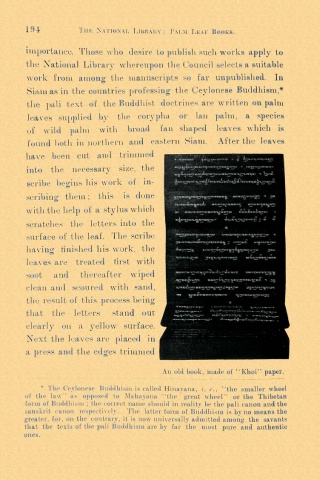 194 THE NATIONAL LIBRARY; PALM LEAF BOOKS.
importance. Those who desire to publish such works apply to
the National Library whereupon the Council selects a suitable
work from among the manuscripts so far unpublished. In
Siam as in the countries professing the Ceylonese Buddhism,*
the pali text of the Buddhist doctrines are written on palm
leaves supplied by the corypha or lan palm, a species
of wild palm with broad fan shaped leaves which is
found both in northern and eastern Siam. After the leaves
have been cut and trimmed
into the necessary size, the
scribe begins his work of in-
scribing them; this is done
with the help of a stylus which
scratches the letters into the
surface of the leaf. The scribe
having finished his work, the
leaves are treated first with
soot and thereafter wiped
clean and scoured with sand,
the result of this process being
that the letters stand out
clearly on a yellow surface.
Next the leaves are placed in
a press and the edges trimmed
An old book, made of "Khoi" paper.
* The Ceylonese Buddhism is called Hinayana, i. e., "the smaller wheel
of the law" as opposed to Mahayana "the great wheel" or the Thibetan
form of Buddhism; the correct name should in reality be the pali canon and the
sanskrit canon respectively. The latter form of Buddhism is by no means the
greater, for, on the contrary, it is now universally admitted among the savants
that the texts of the pali Buddhism are by far the most pure and authentic
ones.